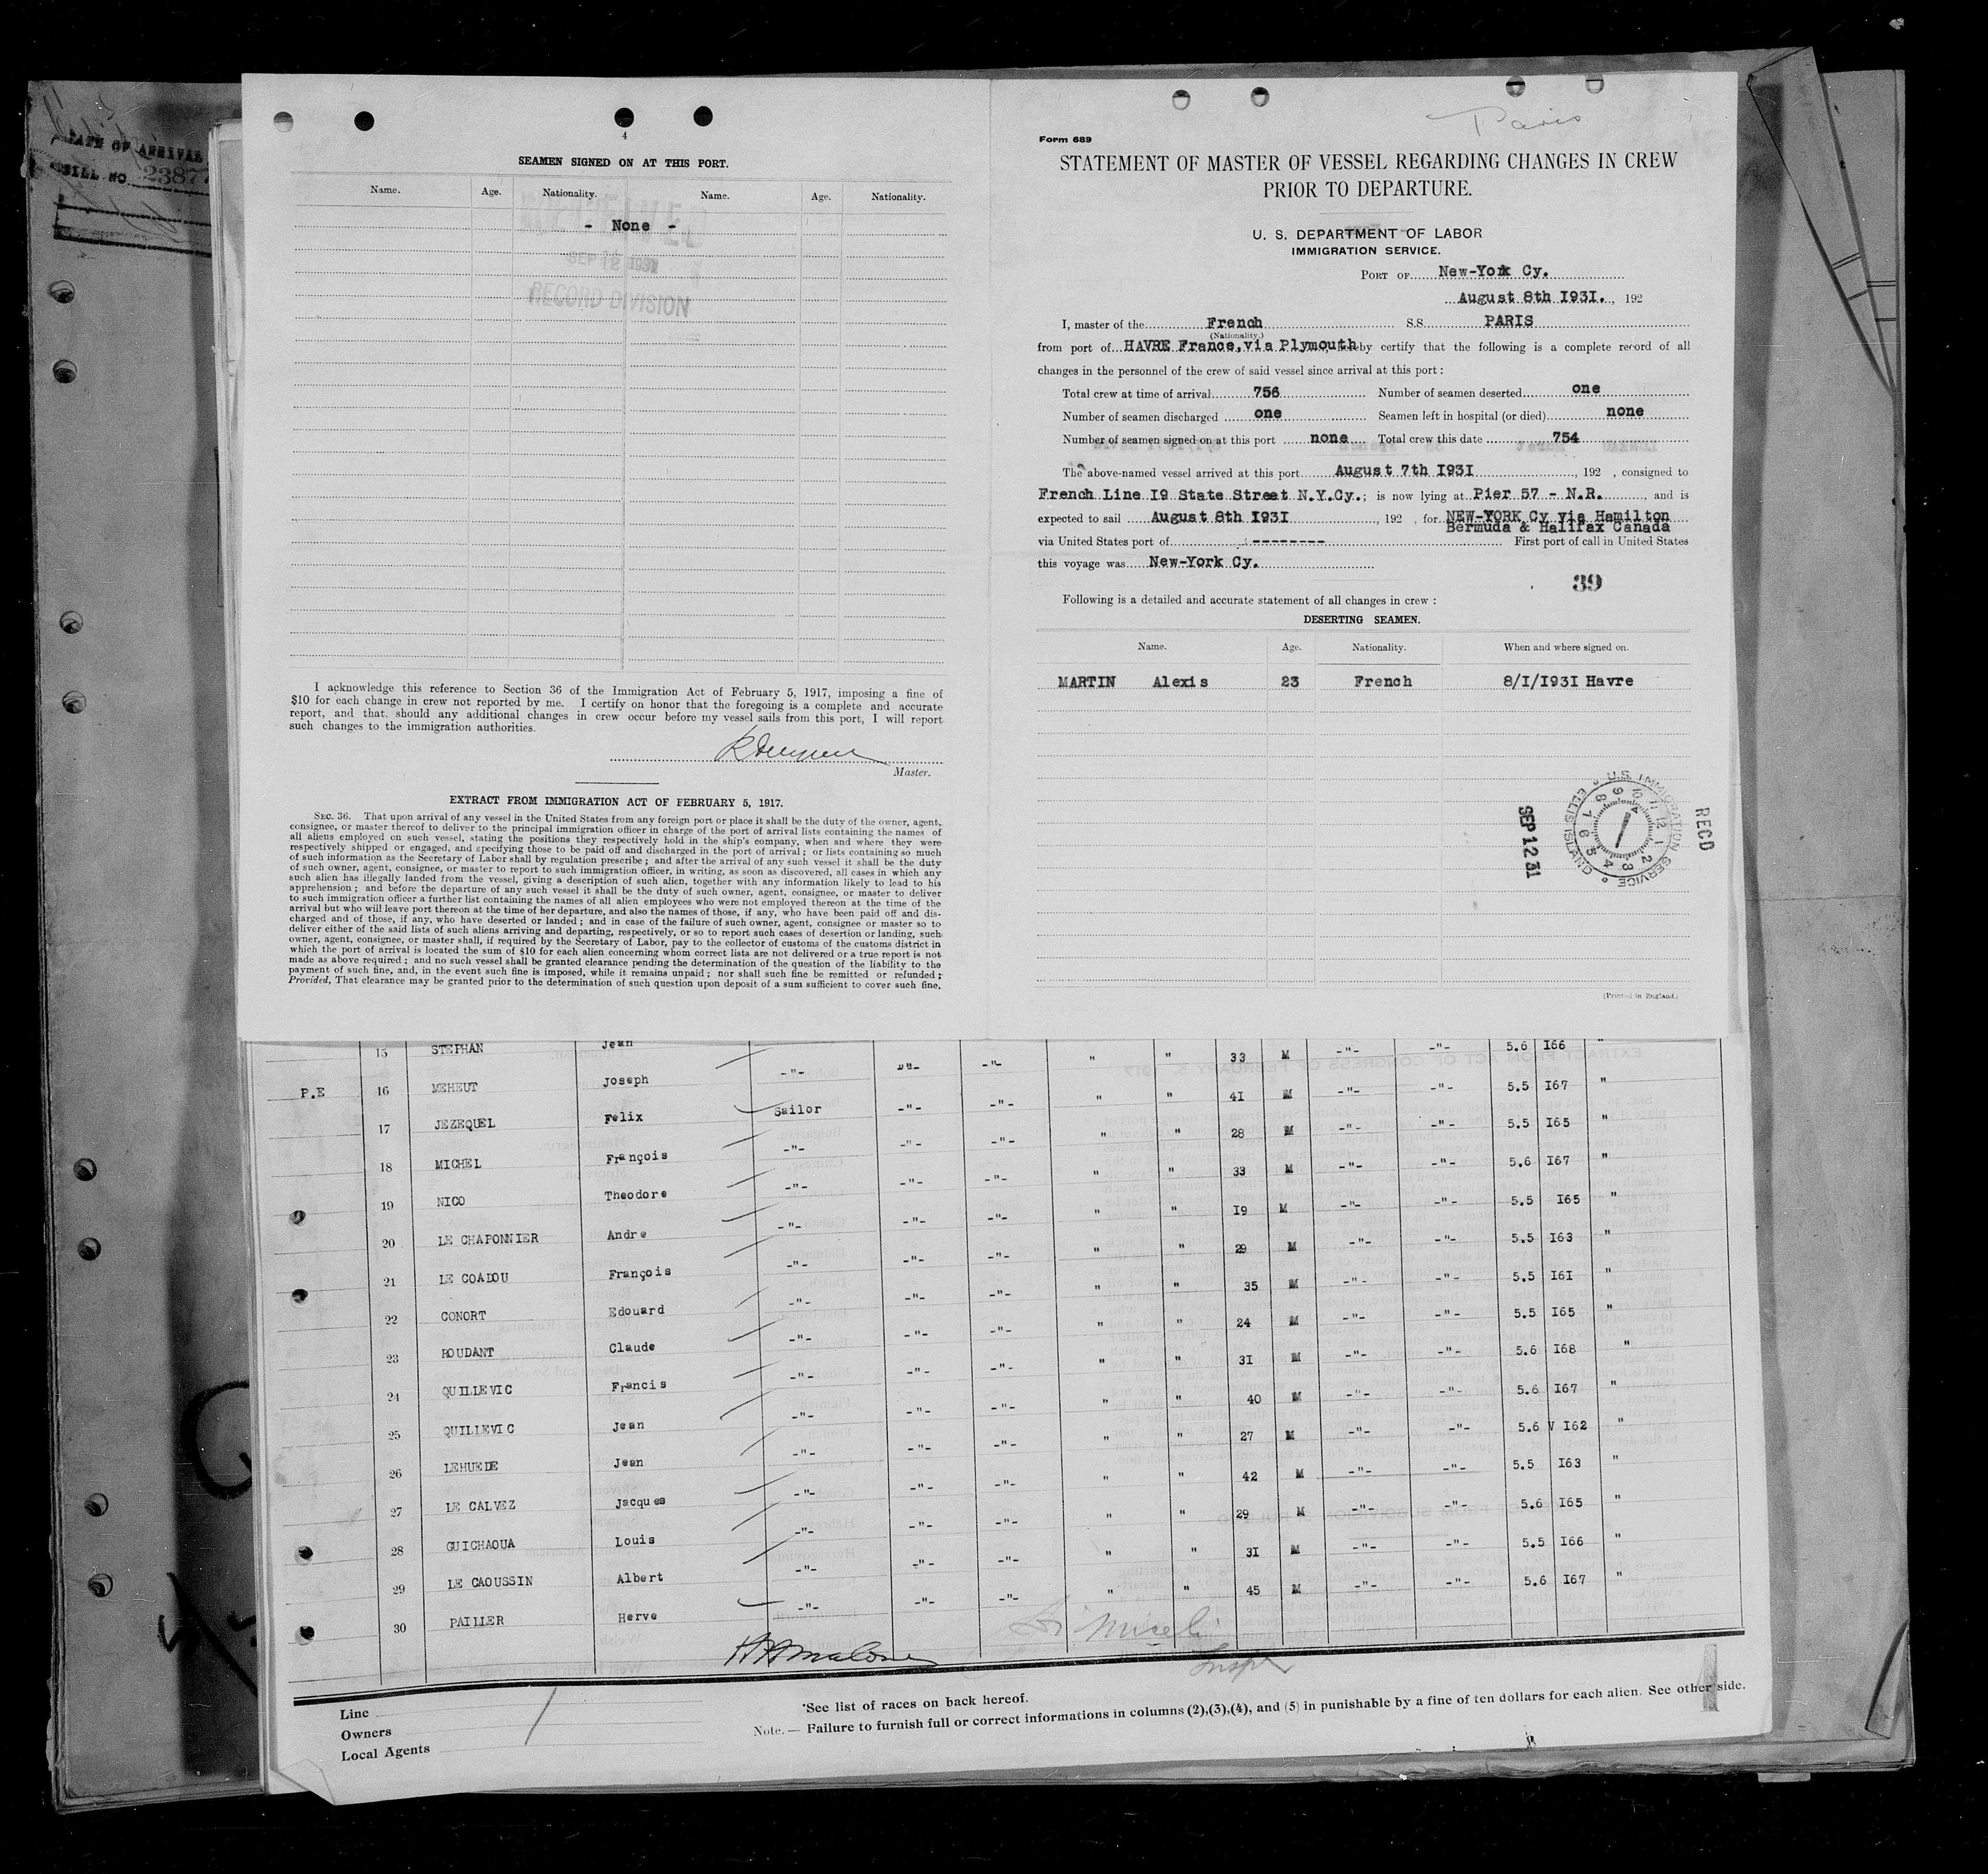 DATE OF ARRIVAL
BILL NO 23877
4
SEAMEN SIGNED ON AT THIS PORT.
Name. Age. Nationality. Name. Age. Nationality.
- None -
SEP 12 1931
RECORD DIVISION
I acknowledge this reference to Section 36 of the Immigration Act of February 5, 1917, imposing a fine of
$10 for each change in crew not reported by me. I certify on honor that the foregoing is a complete and accurate
report, and that. should any additional changes in crew occur before my vessel sails from this port, I will report
such changes to the immigration authorities.
Master.
EXTRACT FROM IMMIGRATION ACT OF FEBRUARY 5, 1917.
SEC. 36. That upon arrival of any vessel in the United States from any foreign port or place it shall be the duty of the owner, agent,
consignee, or master thereof to deliver to the principal immigration officer in charge of the port of arrival lists containing the names of
all aliens employed on such vessel, stating the positions they respectively hold in the ship's company, when and where they were
respectively shipped or engaged, and specifying those to be paid off and discharged in the port of arrival; or lists containing so much
of such information as the Secretary of Labor shall by regulation prescribe; and after the arrival of any such vessel it shall be the duty
of such owner, agent, consignee, or master to report to such immigration officer, in writing, as soon as discovered, all cases in which any
such alien has illegally landed from the vessel, giving a description of such alien, together with any information likely to lead to his
apprehension; and before the departure of any such vessel it shall be the duty of such owner, agent, consignee, or master to deliver
to such immigration officer a further list containing the names of all alien employees who were not employed thereon at the time of the
arrival but who will leave port thereon at the time of her departure, and also the names of those, if any, who have been paid off and dis-
charged and of those, if any, who have deserted or landed; and in case of the failure of such owner, agent, consignee or master so to
deliver either of the said lists of such aliens arriving and departing, respectively, or so to report such cases of desertion or landing, such
owner, agent, consignee, or master shall, if required by the Secretary of Labor, pay to the collector of customs of the customs district in
which the port of arrival is located the sum of $10 for each alien concerning whom correct lists are not delivered or a true report is not
made as above required; and no such vessel shall be granted clearance pending the determination of the question of the liability to the
payment of such fine, and, in the event such fine is imposed, while it remains unpaid; nor shall such fine be remitted or refunded;
Provided, That clearance may be granted prior to the determination of such question upon deposit of a sum sufficient to cover such fine.
Paris
Form 689
STATEMENT OF MASTER OF VESSEL REGARDING CHANGES IN CREW
PRIOR TO DEPARTURE.
U. S. DEPARTMENT OF LABOR
IMMIGRATION SERVICE.
PORT OF New-York Cy.
August 8th I93I. , 192
I, master of the French S.S. PARIS
(Nationality.)
from port of HAVRE France, via Plymouth by certify that the following is a complete record of all
changes in the personnel of the crew of said vessel since arrival at this port:
Total crew at time of arrival 756 Number of seamen deserted one
Number of seamen discharged one Seamen left in hospital (or died) none
Number of seamen signed on at this port none Total crew this date 754
The above-named vessel arrived at this port August 7th I93I , 192 , consigned to
French Line I9 State Street N.Y.Cy.; is now lying at Pier 57 - N.R. , and is
expected to sail August 8th I93I , 192 , for NEW-YORK Cy via Hamilton
Bermuda & Halifax Canada
via United States port of -------- First port of call in United States
this voyage was New-York Cy.
39
Following is a detailed and accurate statement of all changes in crew :
DESERTING SEAMEN.
Name. Age. Nationality. When and where signed on.
MARTIN Alexis 23 French 8/I/I93I Havre
U.S. IMMIGRATION SERVICE ELLIS ISLAND
RECD
SEP 12 31
(Printed in England.)
15 STEPHAN Jean -"- -"- -"- " " 33 M -"- -"- 5.6 I66 "
P.E 16 MEHEUT Joseph Sailor -"- -"- " " 41 M -"- -"- 5.5 I67 "
17 JEZEQUEL Felix -"- -"- -"- " " 28 M -"- -"- 5.5 I65 "
18 MICHEL François -"- -"- -"- " " 33 M -"- -"- 5.6 I67 "
19 NICO Theodore -"- -"- -"- " " I9 M -"- -"- 5.5 I65 "
20 LE CHAPONNIER Andre -"- -"- -"- " " 29 M -"- -"- 5.5 I63 "
21 LE COADOU François -"- -"- -"- " " 35 M -"- -"- 5.5 I6I "
22 CONORT Edouard -"- -"- -"- " " 24 M -"- -"- 5.5 I65 "
23 ROUDANT Claude -"- -"- -"- " " 3I M -"- -"- 5.6 I68 "
24 QUILLEVIC Francis -"- -"- -"- " " 40 M -"- -"- 5.6 I67 "
25 QUILLEVIC Jean -"- -"- -"- " " 27 M -"- -"- 5.6 V I62 "
26 LEHUEDE Jean -"- -"- -"- " " 42 M -"- -"- 5.5 I63 "
27 LE CALVEZ Jacques -"- -"- -"- " " 29 M -"- -"- 5.6 I65 "
28 GUICHAOUA Louis -"- -"- -"- " " 3I M -"- -"- 5.5 I66 "
29 LE CAOUSSIN Albert -"- -"- -"- " " 45 M -"- -"- 5.6 I67 "
30 PAILLER Herve
Line
Owners
Local Agents
*See list of races on back hereof.
Note. — Failure to furnish full or correct informations in columns (2),(3),(4), and (5) in punishable by a fine of ten dollars for each alien. See other side.